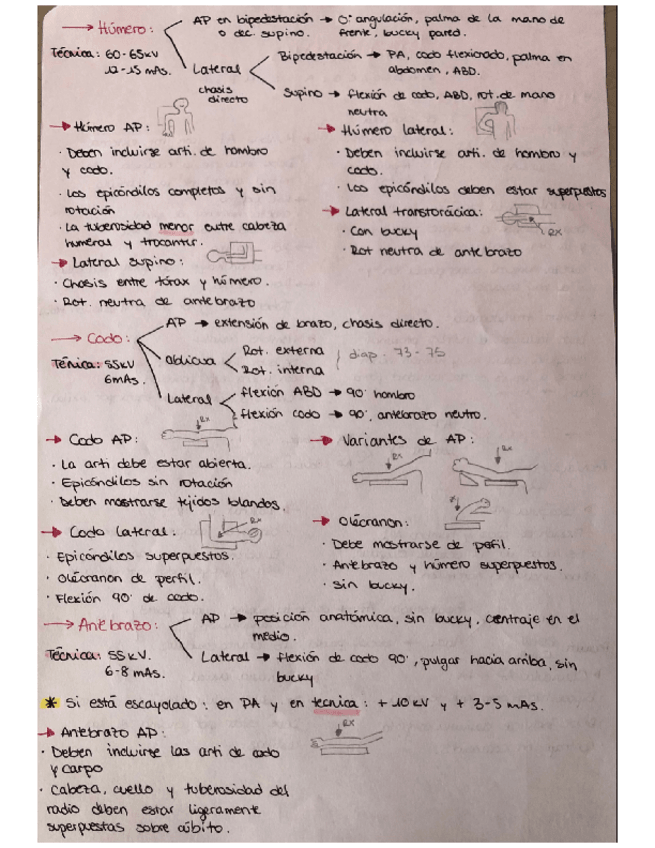 → Húmero:
AP en bipedestación → 0° angulación, palma de la mano de
o dec. supino. frente, bucky pared.
Técnica: 60-65kV
12-15 mAs.
Lateral
Bipedestación → PA, codo flexionado, palma en
abdomen, ABD.
chasis
directo
Supino → flexión de codo, ABD, rot. de mano
neutra
→ Húmero AP:
· Deben incluirse arti. de hombro
y codo.
· Los epicóndilos completos y sin
rotación
· La tuberosidad menor entre cabeza
humeral y trocanter.
→ Lateral supino:
· Chasis entre tórax y húmero.
· Rot. neutra de antebrazo
→ Húmero lateral:
· Deben incluirse arti. de hombro y
codo.
· Los epicóndilos deben estar superpuestos
→ Lateral transtorácica:
· Con bucky
RX
· Rot neutra de antebrazo
→ Codo:
AP → extensión de brazo, chasis directo.
Ténica: 55kV
6mAs.
Oblicua
Rot. externa
Rot. interna
diap. 73-75
Lateral
flexión ABD → 90° hombro
flexión codo → 90°, antebrazo neutro.
→ Codo AP:
RX
· La arti debe estar abierta.
· Epicóndilos sin rotación
· Deben mostrarse tejidos blandos.
→ Variantes de AP:
RX
RX
→ Codo lateral:
RX
· Epicóndilos superpuestos.
· Olécranon de perfil.
· Flexión 90° de codo.
→ Olécranon:
· Debe mostrarse de perfil.
· Antebrazo y húmero superpuestos.
· Sin bucky.
→ Antebrazo:
AP → posición anatómica, sin bucky, centraje en el
medio.
Técnica: 55kV.
6-8 mAs.
Lateral → flexión de codo 90°, pulgar hacia arriba, sin
bucky
* Si está escayolado: en PA y en tecnica: + 10 kV y + 3-5 mAs.
→ Antebrazo AP:
RX
· Deben incluirse las arti de codo
y carpo
· Cabeza, cuello y tuberosidad del
radio deben estar ligeramente
superpuestas sobre cúbito.